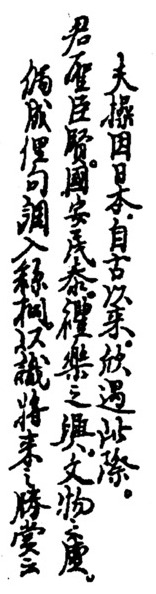 夫操因日本。自古以来。欣遇此際。
君聖臣賢。國安民泰。禮樂之興。文物之
偶成俚句調入絲桐。以識將来之勝賞云